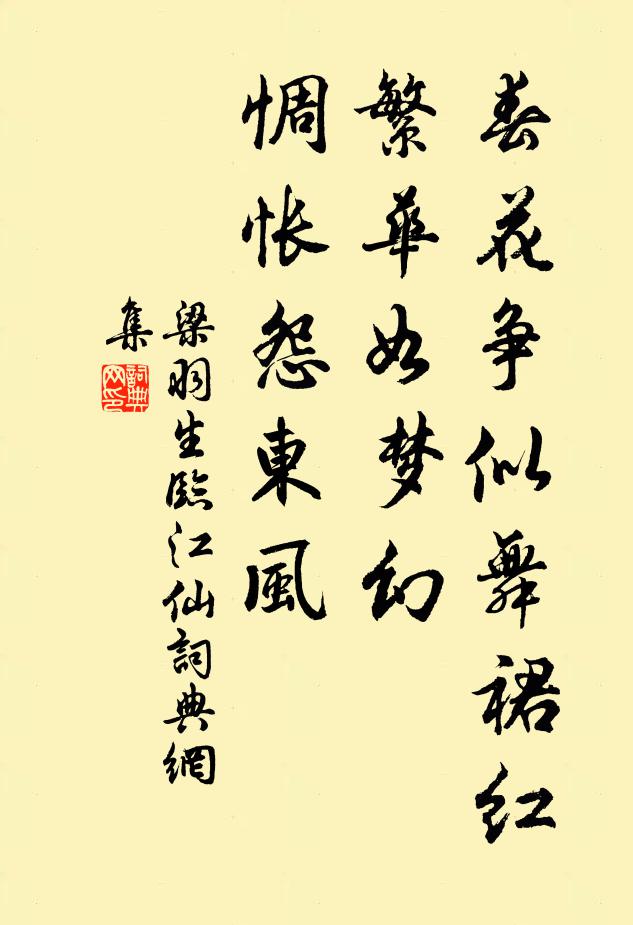 春花争似舞裙红
繁華如梦幻
惆怅怨東風
梁羽生臨江仙詞典網
集
詞典網印